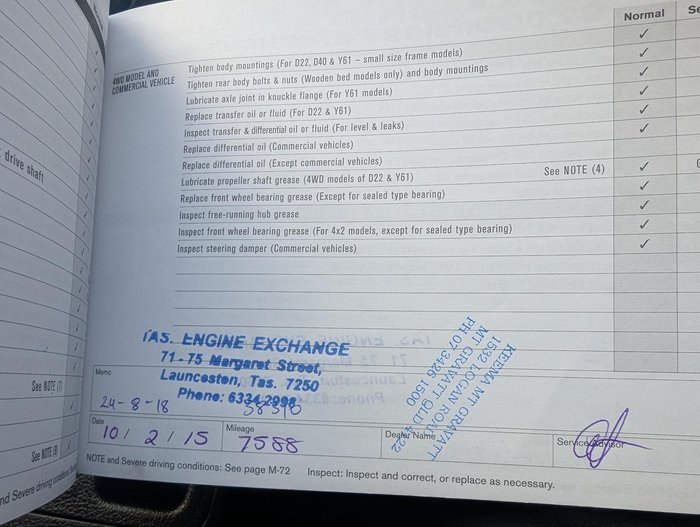 Normal
4WD MODEL AND
COMMERCIAL VEHICLE
Tighten body mountings (For D22, D40 & Y61 – small size frame models) ✓
Tighten rear body bolts & nuts (Wooden bed models only) and body mountings ✓
Lubricate axle joint in knuckle flange (For Y61 models) ✓
Replace transfer oil or fluid (For D22 & Y61) ✓
Inspect transfer & differential oil or fluid (For level & leaks) ✓
Replace differential oil (Commercial vehicles) ✓
Replace differential oil (Except commercial vehicles)
Lubricate propeller shaft grease (4WD models of D22 & Y61) See NOTE (4) ✓
Replace front wheel bearing grease (Except for sealed type bearing) ✓
Inspect free-running hub grease ✓
Inspect front wheel bearing grease (For 4x2 models, except for sealed type bearing) ✓
Inspect steering damper (Commercial vehicles) ✓
drive shaft
See NOTE (7)
See NOTE (9)
nd Severe driving conditions: Se
TAS. ENGINE EXCHANGE
71 - 75 Margaret Street,
Launceston, Tas. 7250
Phone: 6334 2998
KEEMA MT GRAVATT
1532 LOGAN ROAD
MT GRAVATT QLD 4122
PH 07 3426 1500
Memo
24-8-18
Date
10/2/15
Mileage
7588
Dealer Name
Service Advisor
NOTE and Severe driving conditions: See page M-72
Inspect: Inspect and correct, or replace as necessary.